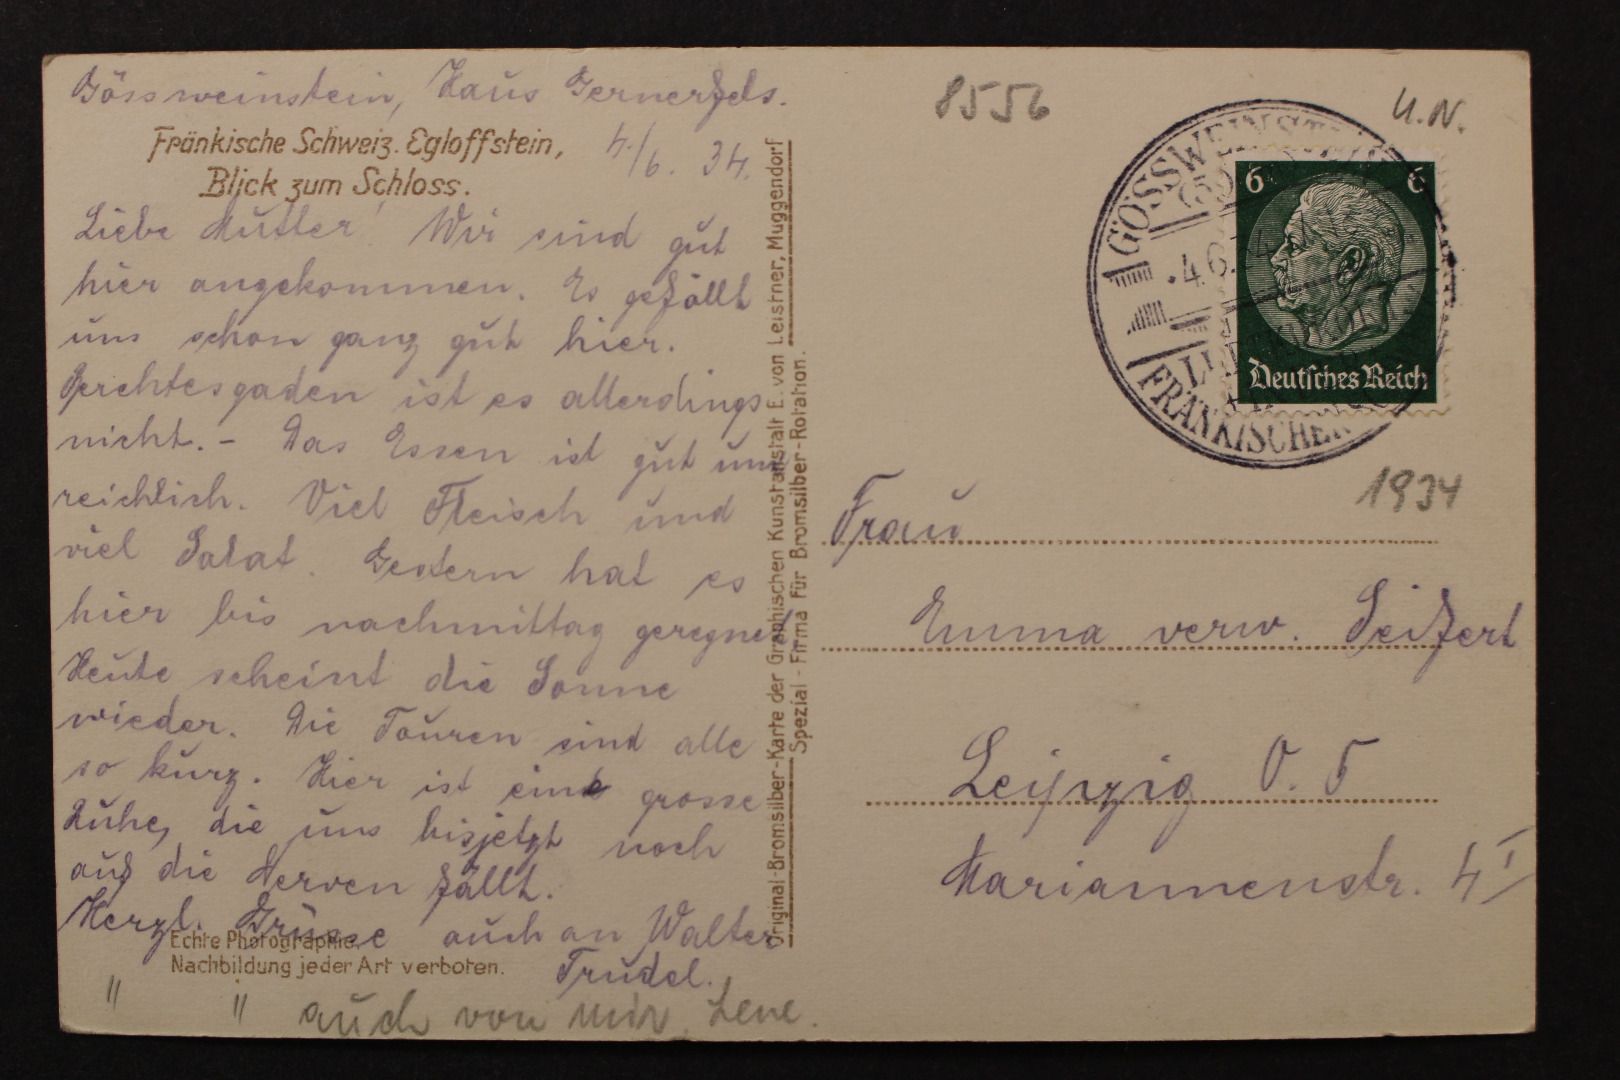 Gössweinstein, Haus Gernerfels.
Fränkische Schweiz. Egloffstein,
Blick zum Schloss.
4./6. 34.
Liebe Mutter! Wir sind gut
hier angekommen. Es gefällt
uns schon ganz gut hier.
Berchtesgaden ist es allerdings
nicht. - Das Essen ist gut und
reichlich. Viel Fleisch und
viel Salat. Gestern hat es
hier bis nachmittag geregnet.
Heute scheint die Sonne
wieder. Die Touren sind alle
so kurz. Hier ist eine grosse
Ruhe, die uns bisjetzt noch
auf die Nerven fällt.
Herzl. Grüsse auch an Walter
Trudel.
" " auch von mir. Lene.
Echte Photographie.
Nachbildung jeder Art verboten.
Original-Bromsilber-Karte der Graphischen Kunstanstalt E. von Leistner, Muggendorf
Spezial-Firma für Bromsilber-Rotation.
8556
U.N.
GÖSSWEINSTEIN
4.6.34
FRÄNKISCHEN
6 6
Deutsches Reich
1934
Frau
Emma verw. Seifert
Leipzig O. 5
Mariannenstr. 4 I